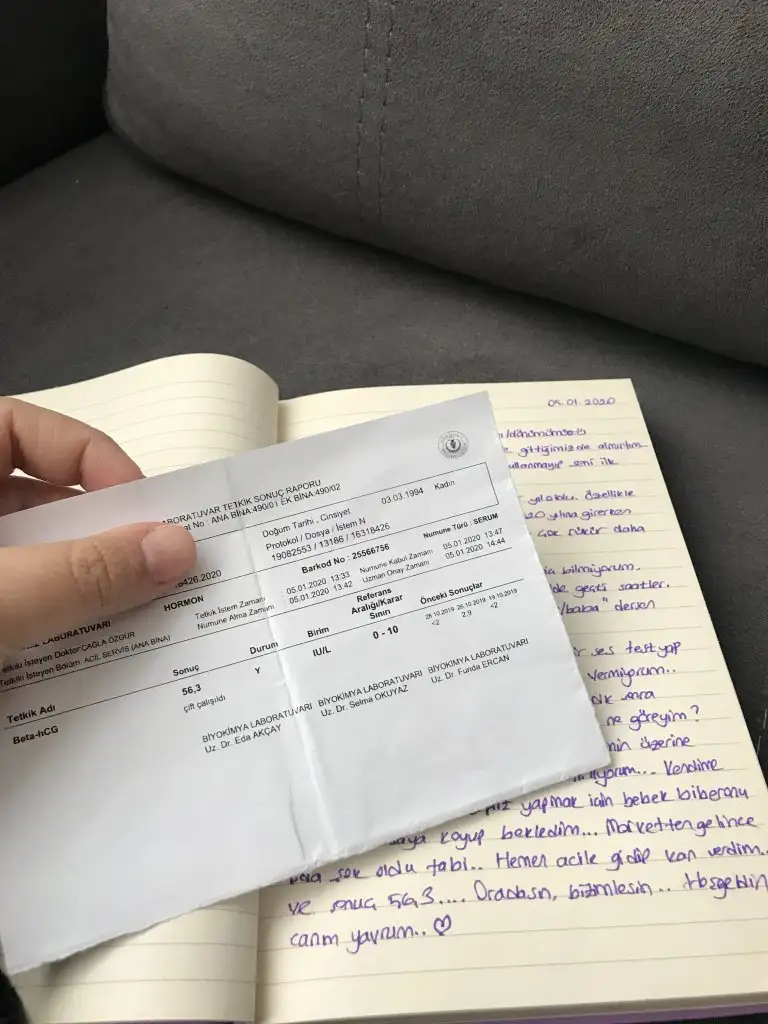 05.01.2020
LABORATUVAR TETKİK SONUÇ RAPORU
No : ANA BİNA:490/01 EK BİNA:490/02
Doğum Tarihi , Cinsiyet 03.03.1994 Kadın
Protokol / Dosya / İstem N
19082553 / 13186 / 16318426
Barkod No : 25566756 Numune Türü : SERUM
HORMON
Tetkik İstem Zamanı : 05.01.2020 13:33 Numune Kabul Zamanı 05.01.2020 13:47
Numune Alma Zamanı : 05.01.2020 13:42 Uzman Onay Zamanı 05.01.2020 14:44
LABORATUVARI
Tetkiki İsteyen Doktor:ÇAĞLA ÖZGÜR
Tetkiki İsteyen Bölüm: ACİL SERVİS (ANA BİNA)
Tetkik Adı Sonuç Durum Birim Referans Aralığı/Karar Sınırı Önceki Sonuçlar
28.10.2019 26.10.2019 19.10.2019
Beta-hCG 56,3 Y IU/L 0 - 10 <2 2,9 <2
çift çalışıldı
BİYOKİMYA LABORATUVARI BİYOKİMYA LABORATUVARI BİYOKİMYA LABORATUVARI
Uz. Dr. Eda AKÇAY Uz. Dr. Selma OKUYAZ Uz. Dr. Funda ERCAN
gittiğimizde almıştım
kullanmayıp seni ilk
özellikle
20 yılına girerken
çok şükür daha
bilmiyorum.
geçti saatler.
baba" dersen
ses test yap
vermiyorum..
sonra
ne göreyim?
üzerine
Kendime
yapmak için bebek biberonu
koyup bekledim... Marketten gelince
şok oldu tabi.. Hemen acile gidip kan verdim..
ve sonuç 56,3.... Oradasın, bizimlesin.. Hoşgeldin
canım yavrum.. ♡